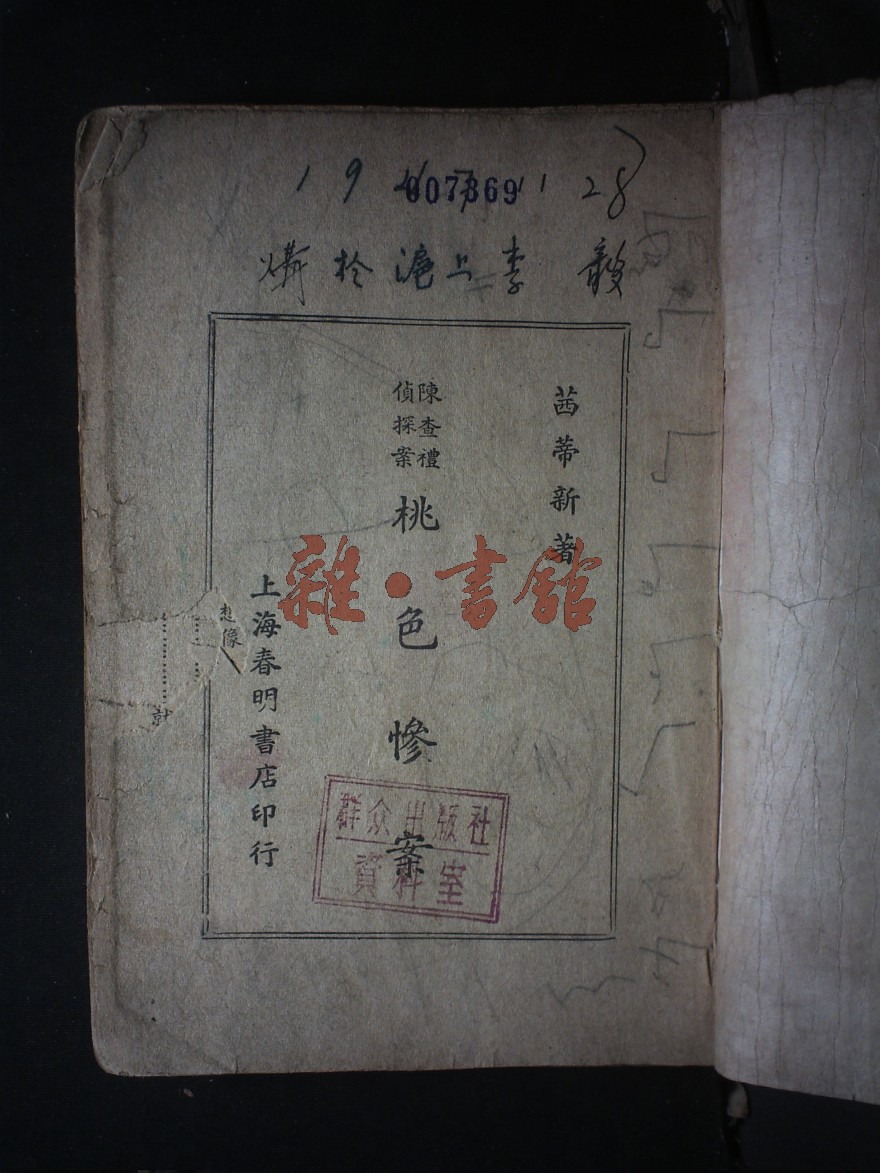 007369
28
於滬上李毅
茜蒂新著
陳查禮
偵探案
桃色慘案
上海春明書店印行
想像
就
雜·書館
群众出版社
資料室